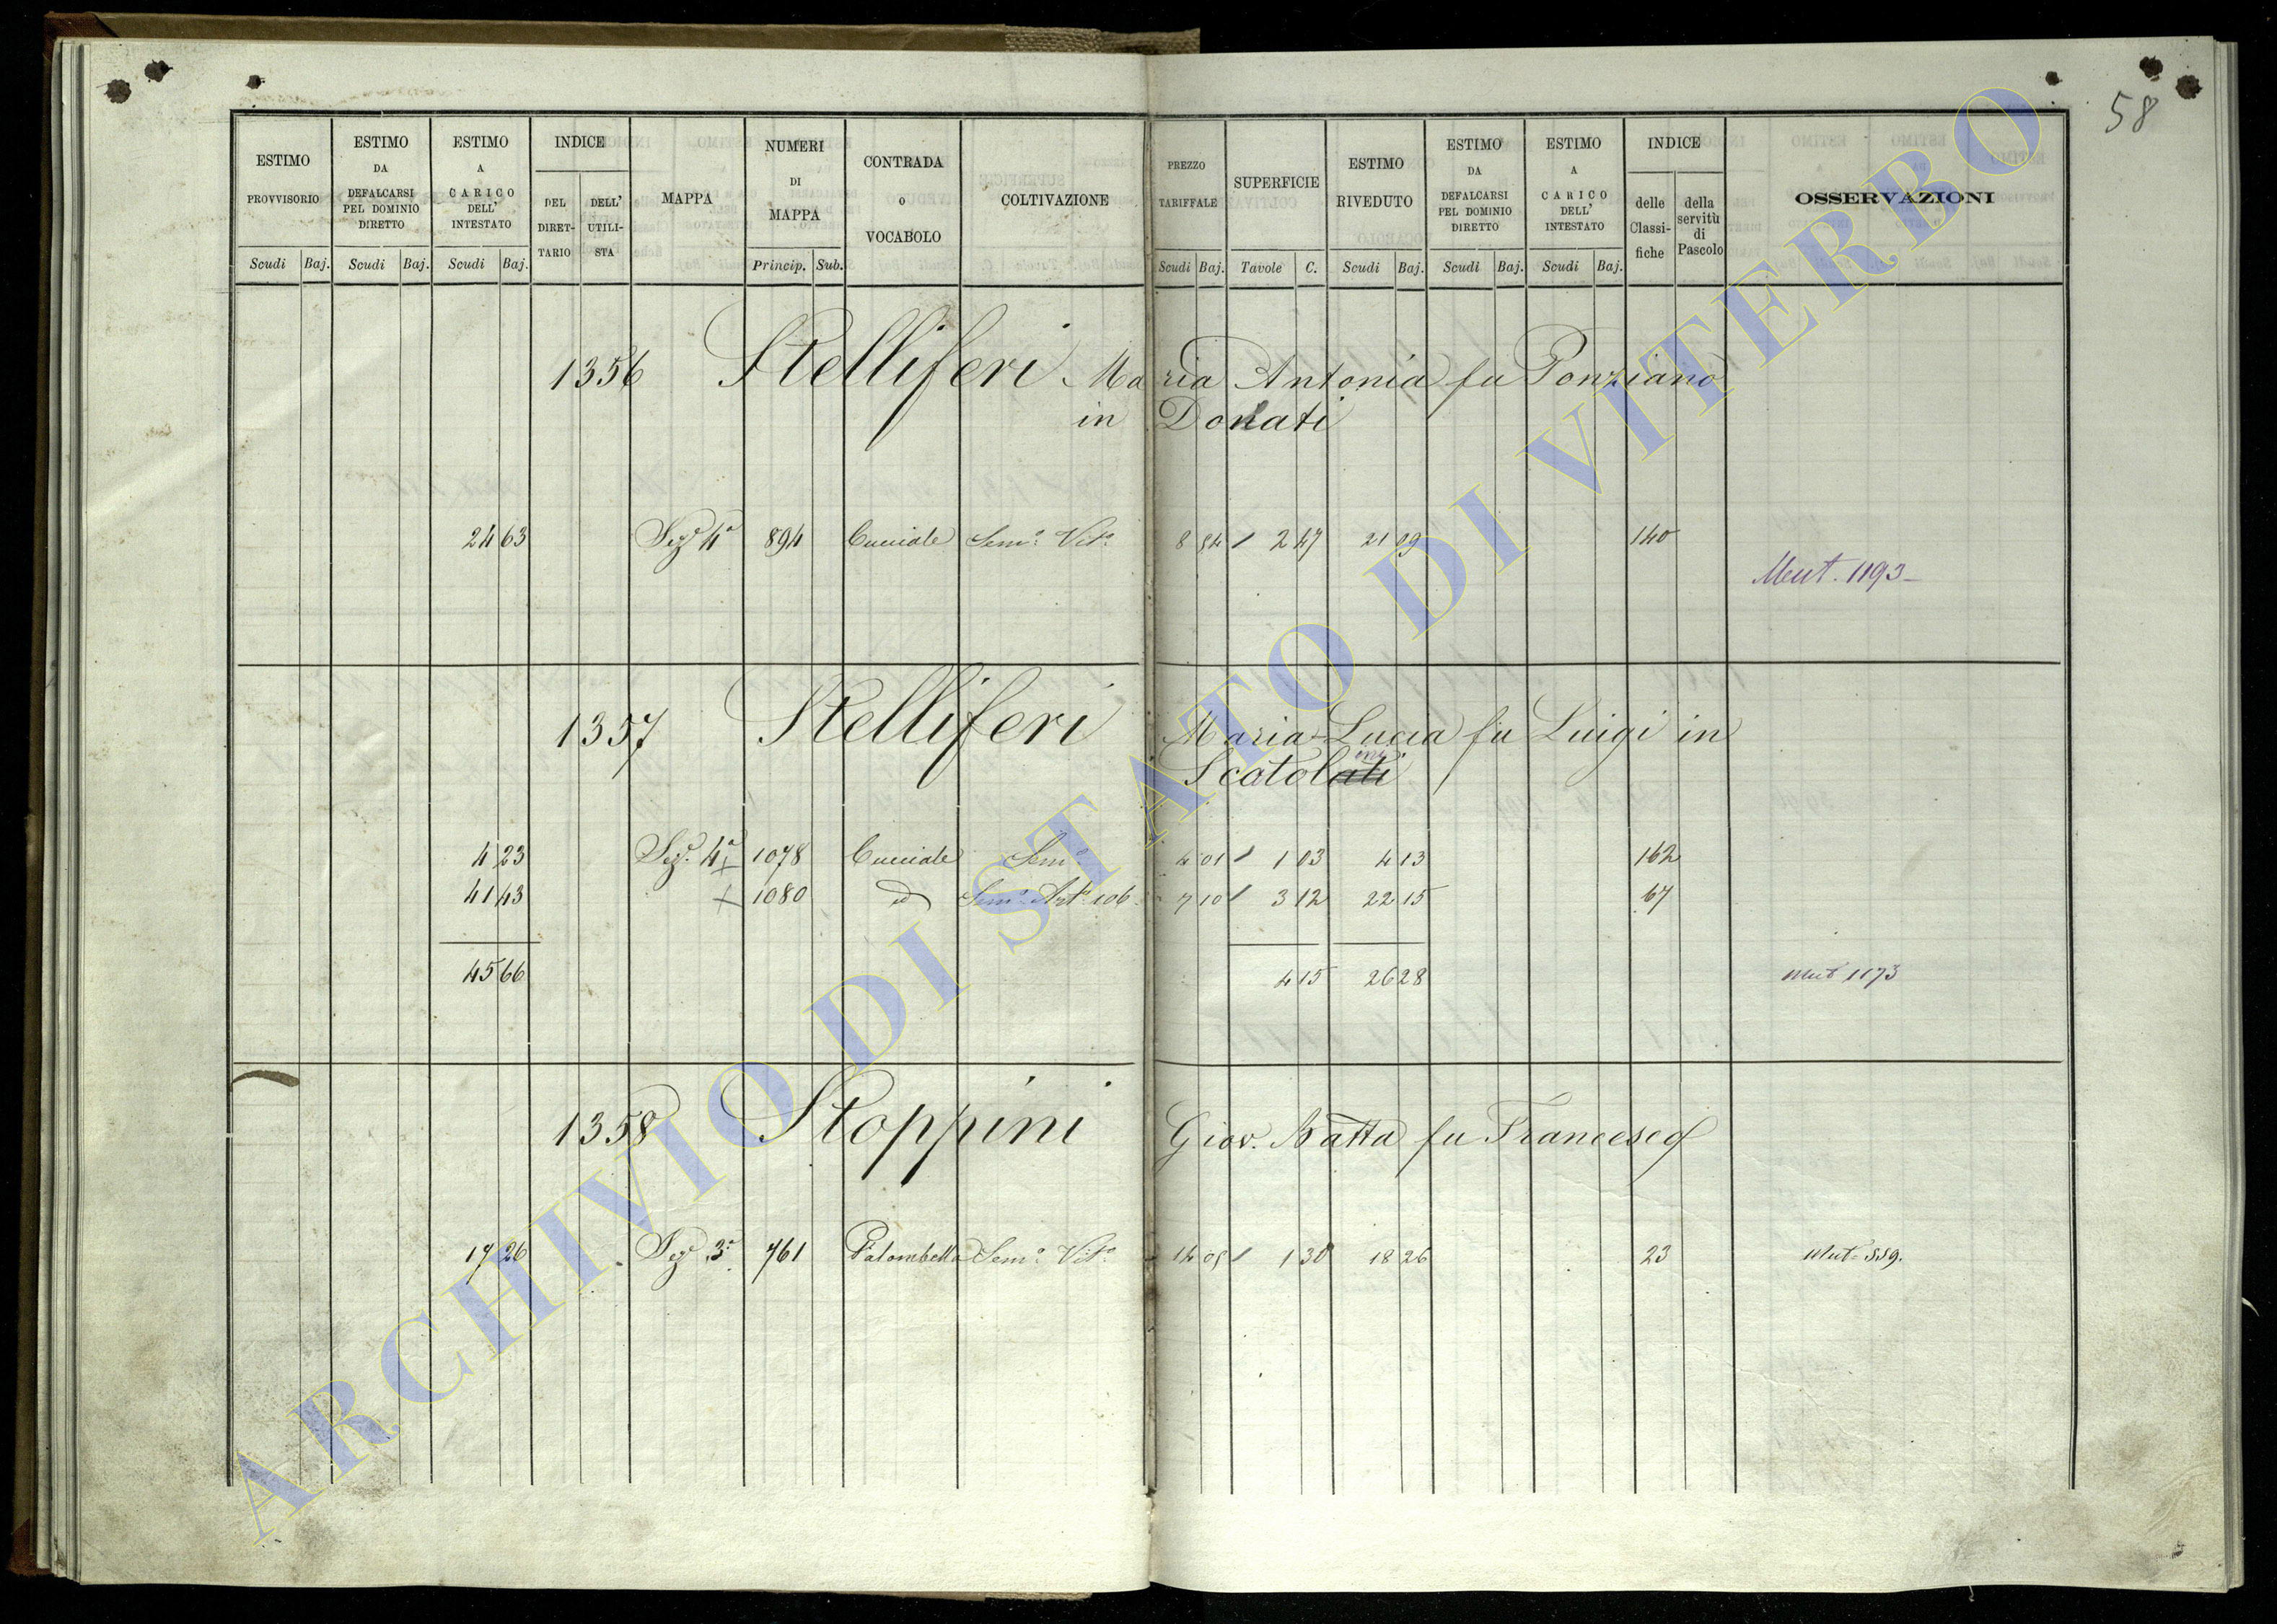 58
ESTIMO PROVVISORIO
ESTIMO DA DEFALCARSI PEL DOMINIO DIRETTO
ESTIMO A CARICO DELL' INTESTATO
INDICE
DEL DIRET-TARIO
DELL' UTILI-STA
MAPPA
NUMERI DI MAPPA
CONTRADA O VOCABOLO
COLTIVAZIONE
PREZZO TARIFFALE
SUPERFICIE
ESTIMO RIVEDUTO
ESTIMO DA DEFALCARSI PEL DOMINIO DIRETTO
ESTIMO A CARICO DELL' INTESTATO
INDICE
delle Classi-fiche
della servitù di Pascolo
OSSERVAZIONI
Scudi Baj. Scudi Baj. Scudi Baj. Princip. Sub. Scudi Baj. Tavole C. Scudi Baj. Scudi Baj. Scudi Baj.
1356 Stelliferi Maria Antonia fu Ponziano
in Donati
24 63 Sezᵉ 4ª 894 Cucciale Semᵒ Vitᵒ 8 54 2 47 21 09 140
Mut. 1193
1357 Stelliferi Maria Lucia fu Luigi in
Scatolati ini
4 23 Sezᵉ 4ª + 1078 Cucciale Semᵒ 4 01 1 03 4 13 162
41 43 + 1080 id Semᵒ Artᵒ 106 7 10 3 12 22 15 67
45 66 4 15 26 28 Mut 1173
1358 Stoppini Giov. Batta fu Francesco
17 26 Sezᵉ 3ª 761 Palombella Semᵒ Vitᵒ 14 05 1 30 18 26 23 Mut. 559.
ARCHIVIO DI STATO DI VITERBO